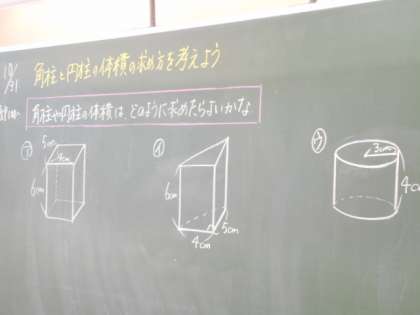 10/31
角柱と円柱の体積の求め方を考えよう
角柱や円柱の体積は、どのように求めたらよいかな
ア
5cm
4cm
6cm
イ
6cm
4cm
5cm
ウ
3cm
4cm